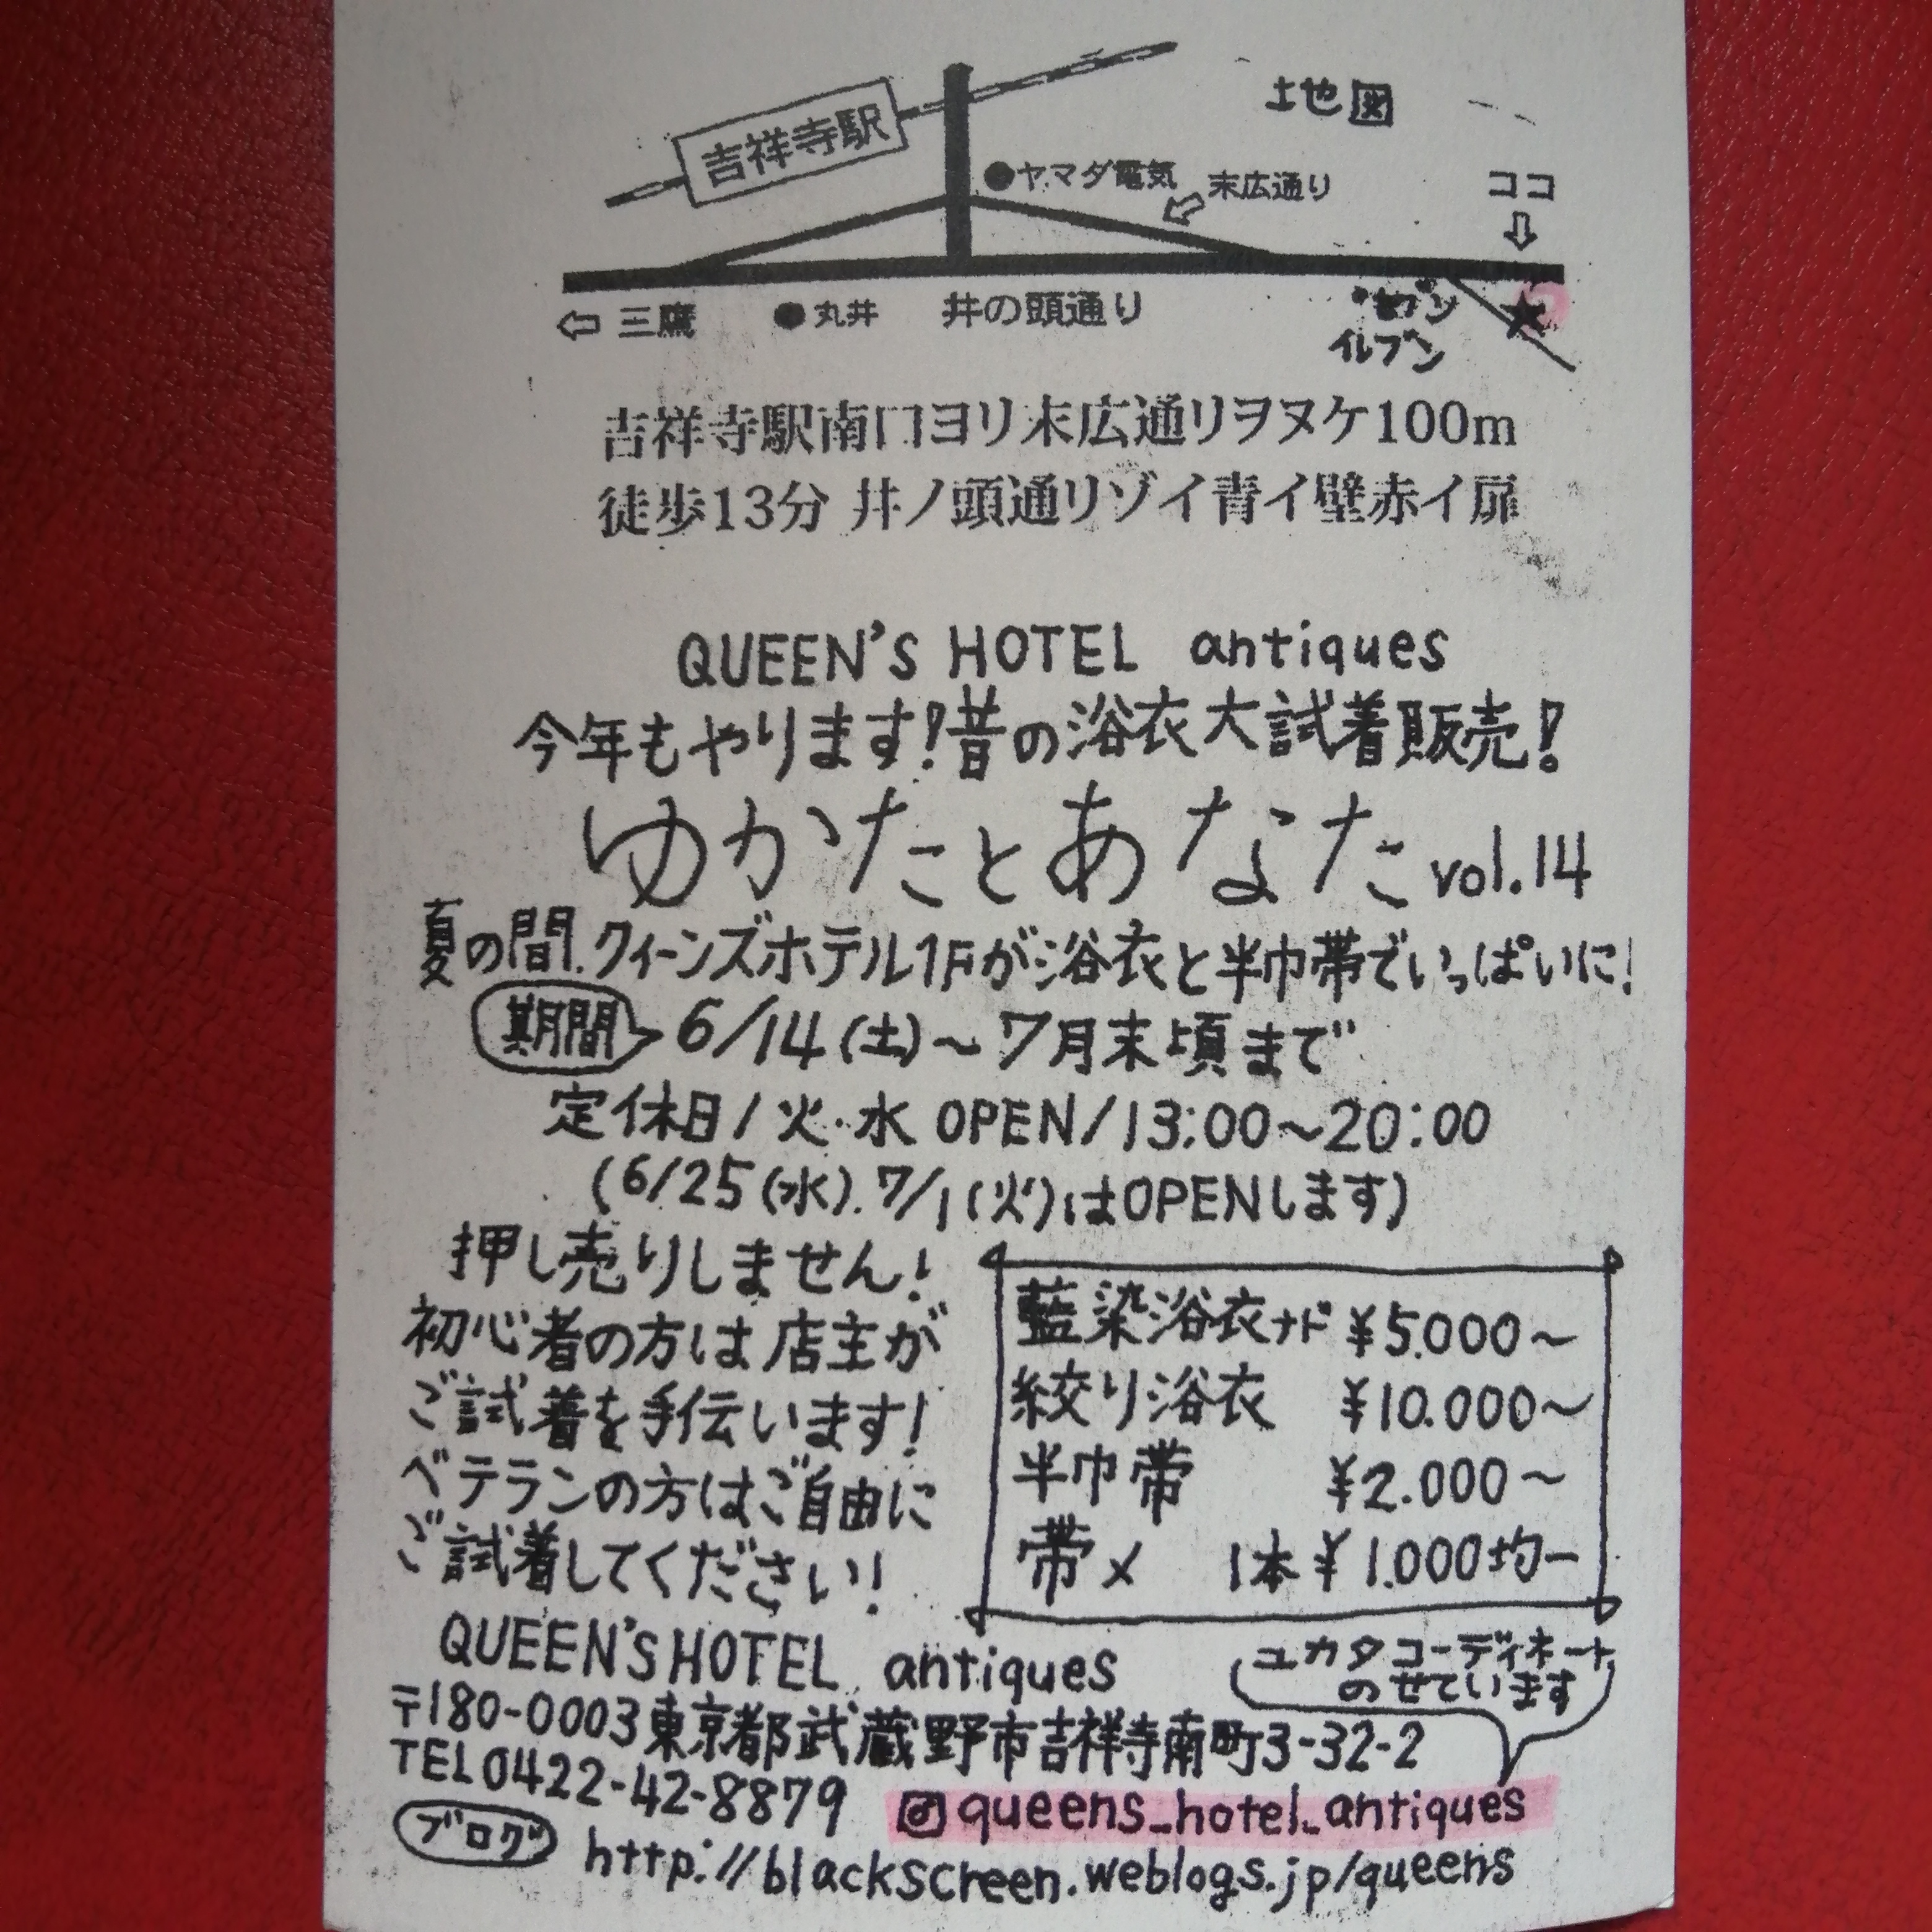 地図
吉祥寺駅
●ヤマダ電気
末広通り
ココ
三鷹
●丸井
井の頭通り
セブン
イレブン
吉祥寺駅南口ヨリ末広通リヲヌケ100m
徒歩13分 井ノ頭通リゾイ青イ壁赤イ扉
QUEEN'S HOTEL antiques
今年もやります!昔の浴衣大試着販売!
ゆかたとあなた vol.14
夏の間、クィーンズホテル1Fが浴衣と半巾帯でいっぱいに!
期間 6/14(土)~7月末頃まで
定休日/火・水 OPEN/13:00~20:00
(6/25(水).7/1(火)はOPENします)
押し売りしません!
初心者の方は店主が
ご試着を手伝います!
ベテランの方はご自由に
ご試着してください!
藍染浴衣ナド ¥5.000~
絞り浴衣 ¥10.000~
半巾帯 ¥2.000~
帯〆 1本¥1.000均一
QUEEN'S HOTEL antiques
ユカタコーディネート
のせています
〒180-0003東京都武蔵野市吉祥寺南町3-32-2
TEL0422-42-8879
queens_hotel_antiques
ブログ http://blackscreen.weblogs.jp/queens